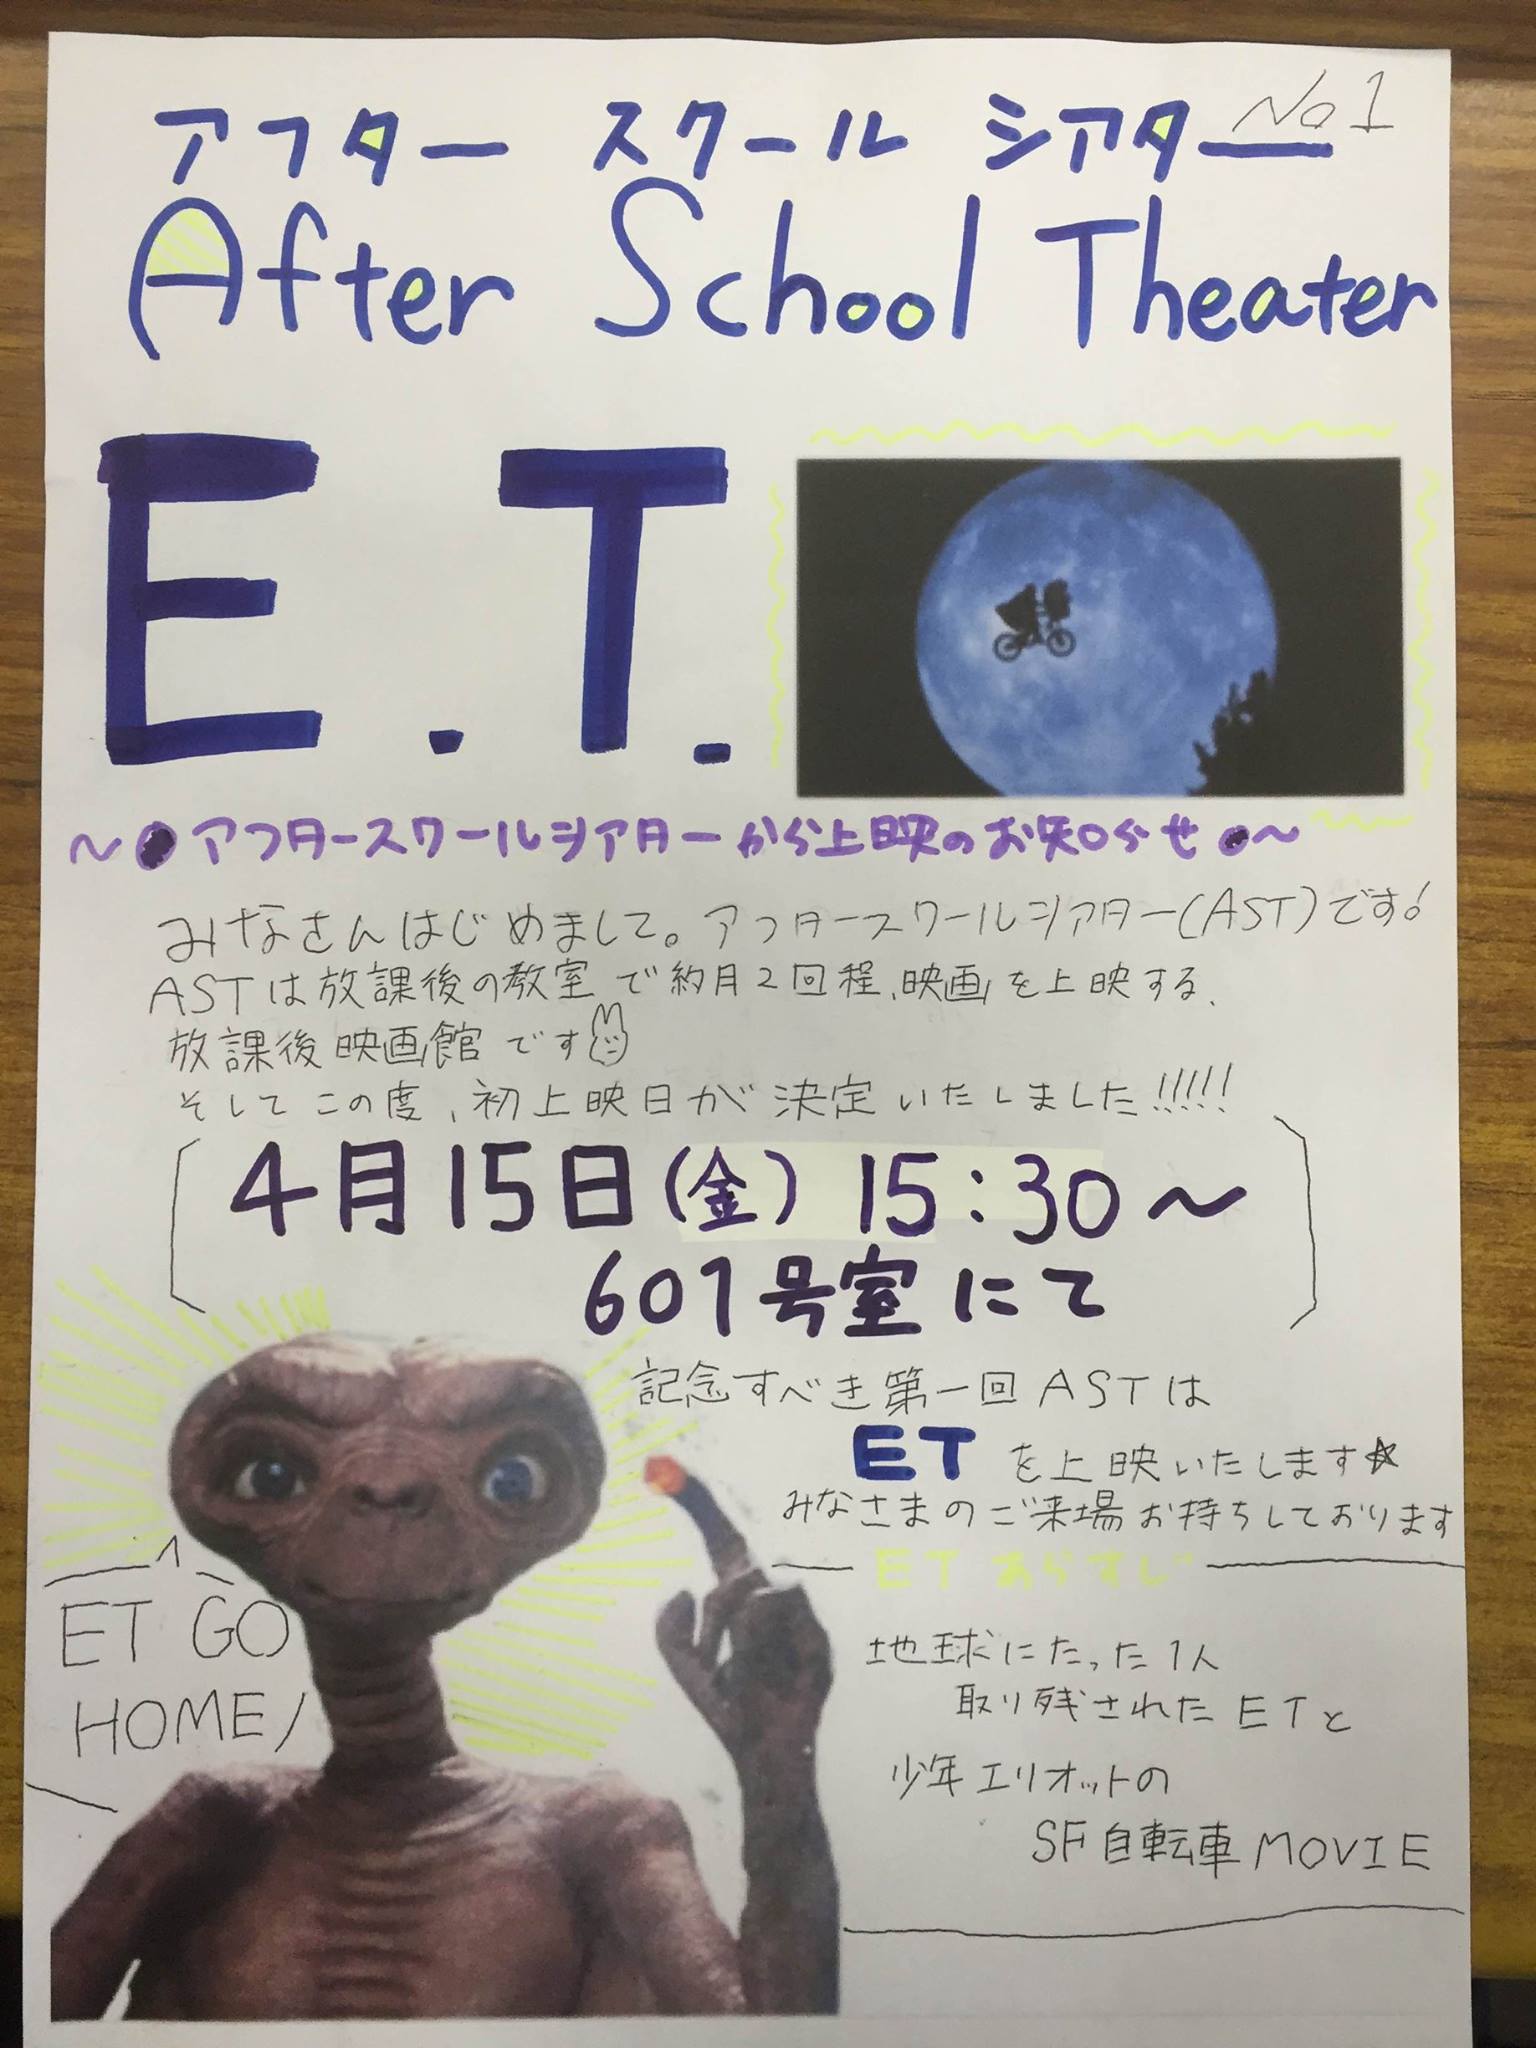 No1
アフター スクール シアター
After School Theater
E.T.
～●アフタースクールシアターから上映のお知らせ●～
みなさんはじめまして。アフタースクールシアター(AST)です!
ASTは放課後の教室で約月2回程、映画を上映する、
放課後映画館です
そしてこの度、初上映日が決定いたしました!!!!!
4月15日(金) 15:30～
601号室にて
記念すべき第一回ASTは
ETを上映いたします☆
みなさまのご来場お待ちしております
ETあらすじ
ET GO
HOME/
地球にたった1人
取り残されたETと
少年エリオットの
SF自転車MOVIE